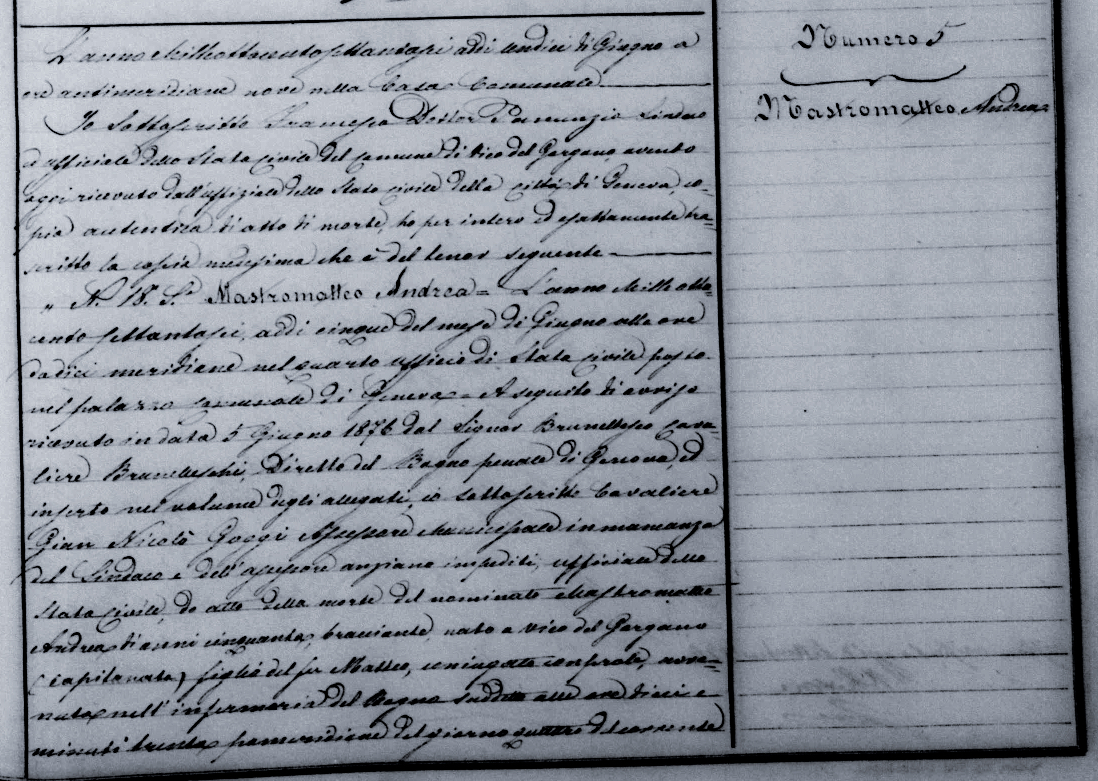 L'anno Milleottocentosettantasei addì undici di Giugno a
ore antimeridiane nove nella Casa Comunale.
Io Sottoscritto Francesco Dottor Sindaco
d ufficiale dello Stato civile del comune di Vico del Gargano, avento
oggi ricevuto dall'uffiziale dello Stato civile della città di Genova co=
pia autentica di atto di morte, ho per intero ed esattamente tra=
scritto la copia medesima che è del tenor seguente
„ N. 18. Mastromatteo Andrea = L'anno Mille otto=
cento settantasei, addì cinque del mese di Giugno alle ore
dodici meridiane nel quarto ufficio di Stato civile posto
nel palazzo comunale di Genova = A seguito di avviso
ricevuto in data 5 Giugno 1876 dal Signor Brunellesco Cava=
liere Brunelleschi, Diretto del Bagno penale di Genova, ed
inserto nel volume degli allegati, io sottoscritto Cavaliere
Gian Nicolò Assessore Municipale in mancanza
del Sindaco e dell'assessore anziano impediti, ufficiale dello
Stato Civile, do atto della morte del nominato Mastromatteo
Andrea d'anni cinquanta, bracciante, nato a Vico del Gargano
(Capitanata) figlio del fu Matteo, coniugato con prole, avve=
nuta nell'infermeria del Bagno suddetto alle ore dieci e
minuti trenta pomeridiane del giorno quattro del corrente
Numero 5
Mastromatteo Andrea